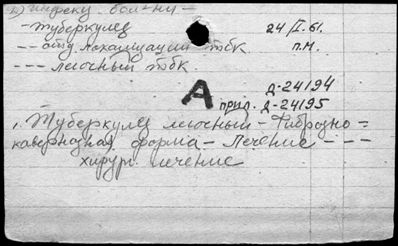 инфекц. болезни —
— туберкулез 24/I. 61.
— — — отд. локализации тбк п.м.
— — — легочный тбк
А
Д-24194
прил. Д-24195
1. Туберкулез легочный — Фиброзно =
кавернозная форма — Лечение — — —
хирург. лечение